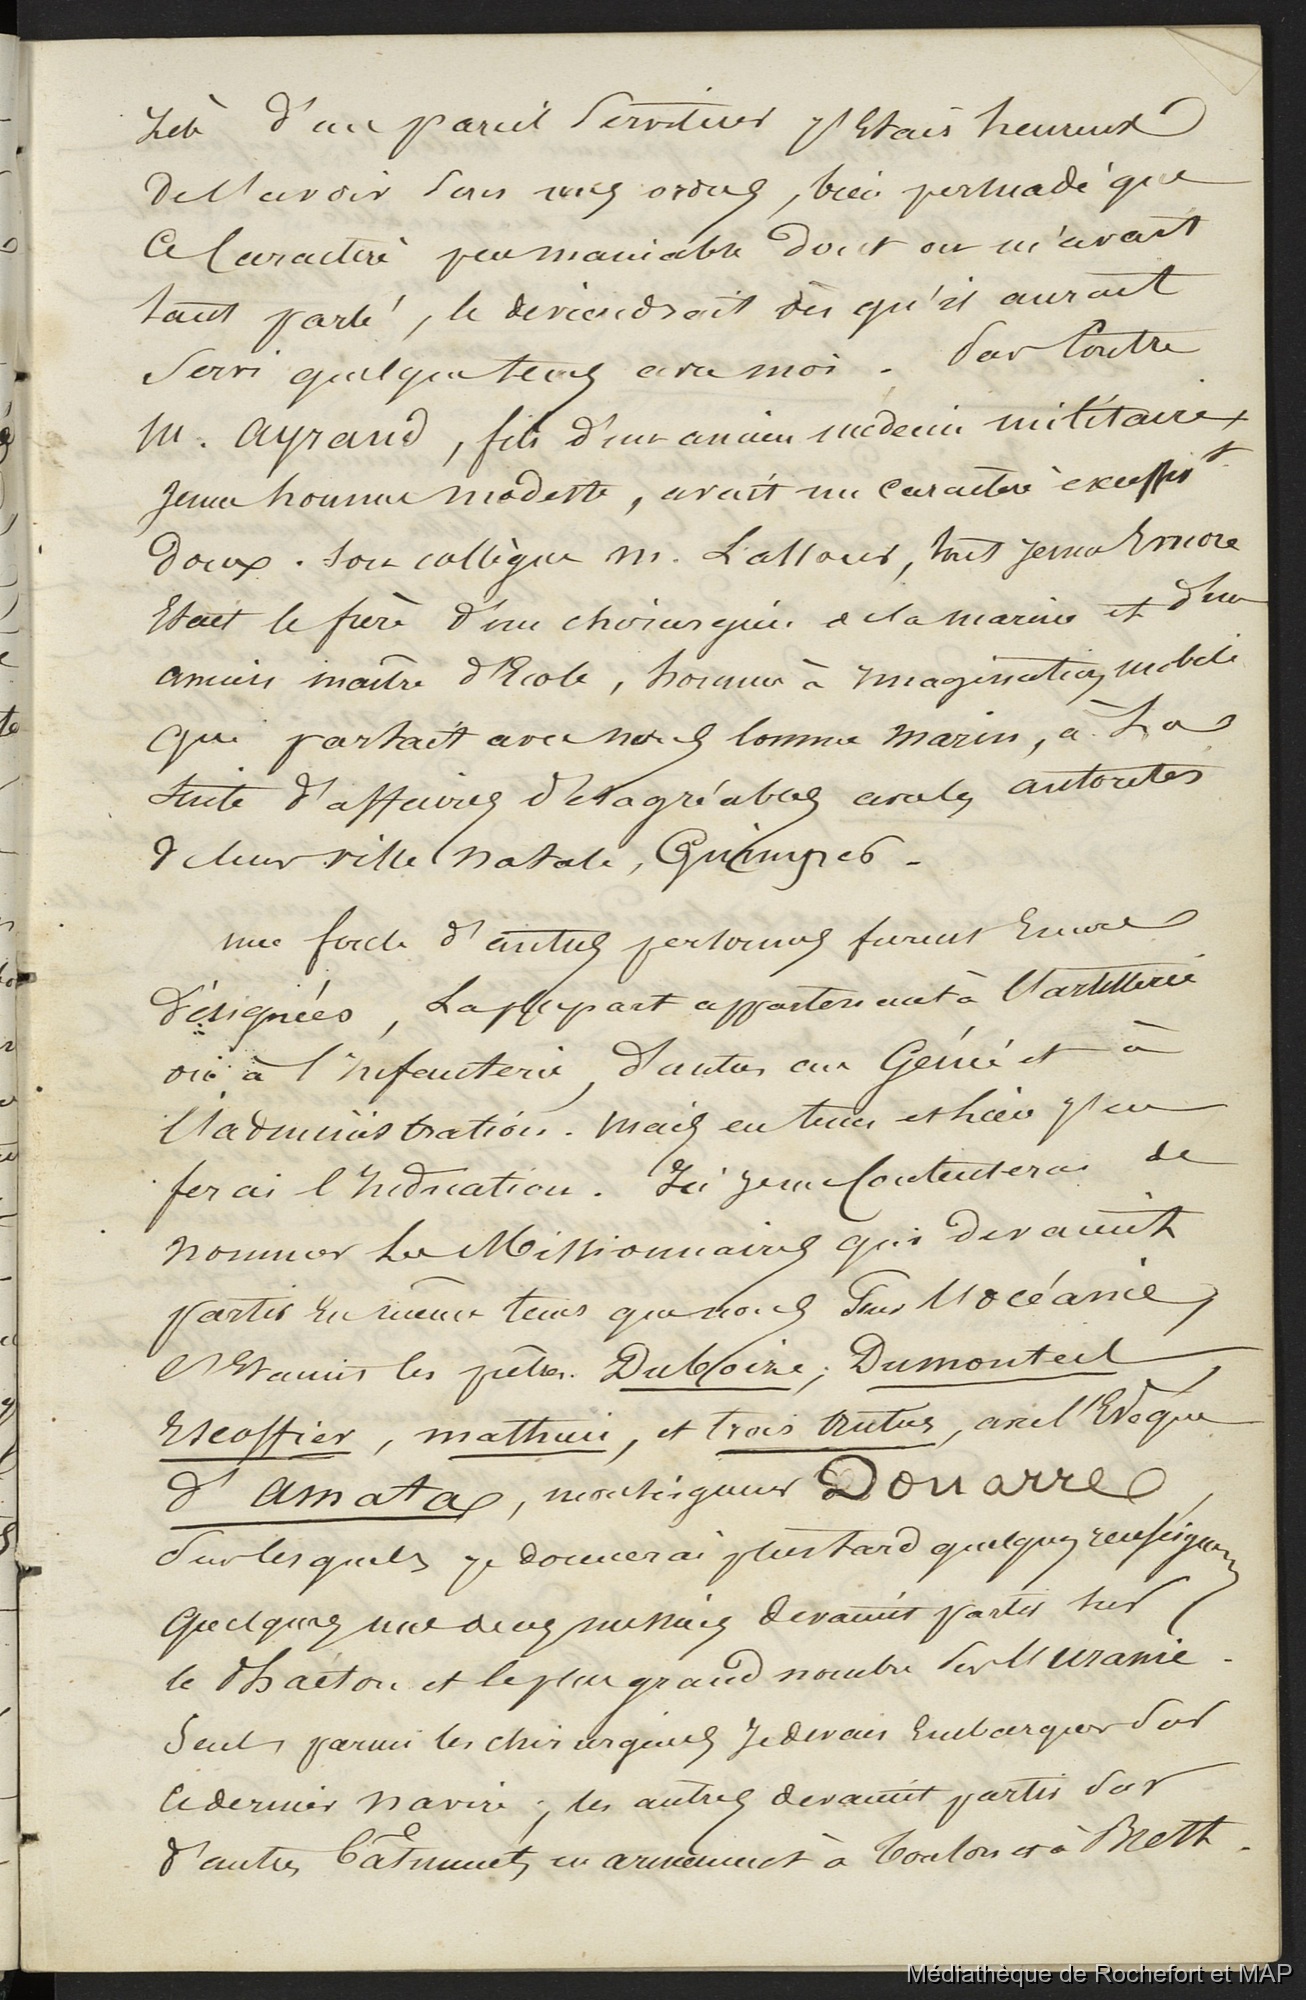 Zélé d'un pareil serviteur j'Etais heureux
de l'avoir sous mes ordres, bien persuadé que
Ce Caractère peu maniable dont on m'avait
tant parlé, le deviendrait dès qu'il aurait
Servi quelque tems avec moi. Par Contre
M. Ayraud, fils d'un ancien médecin militaire
Jeune homme modeste, avait un Caractère excessivt
Doux. Son collègue M. Lallour, tout jeune Encore
Etait le frère d'un chirurgien de la marine et d'un
ancien maître d'Ecole, homme à imagination mobile
Qui partait avec nous Comme Marin, à La
Suite d'affaires désagréables avec les autorités
de leur ville Natale, Quimper.
une foule d'autres personnes furent Encore
Désignées, La plupart appartenant à l'artillerie
ou à l'infanterie, d'autres au Génie et à
l'administration. Mais en tems et lieu j'en
ferai l'indication. Ici je me Contenterai de
nommer Les Missionnaires qui devaient
partir En même tems que nous Pour l'océanie,
C'Etaient les pères. Duboize, Dumonteil
Escoffier, mathieu, et trois autres, avec l'Evêque
d'Amata, monseigneur Douarre
Sur lesquels je donnerai plus tard quelques renseignem
Quelques uns de ces devaient partir sur
le Phaéton et le plus grand nombre Sur l'uranie.
Seul parmi les chirurgiens Je devais Embarquer Sur
Ce dernier Navire, les autres devaient partir Sur
d'autres Bâtiments en armement à Toulon et à Brest.
Médiathèque de Rochefort et MAP